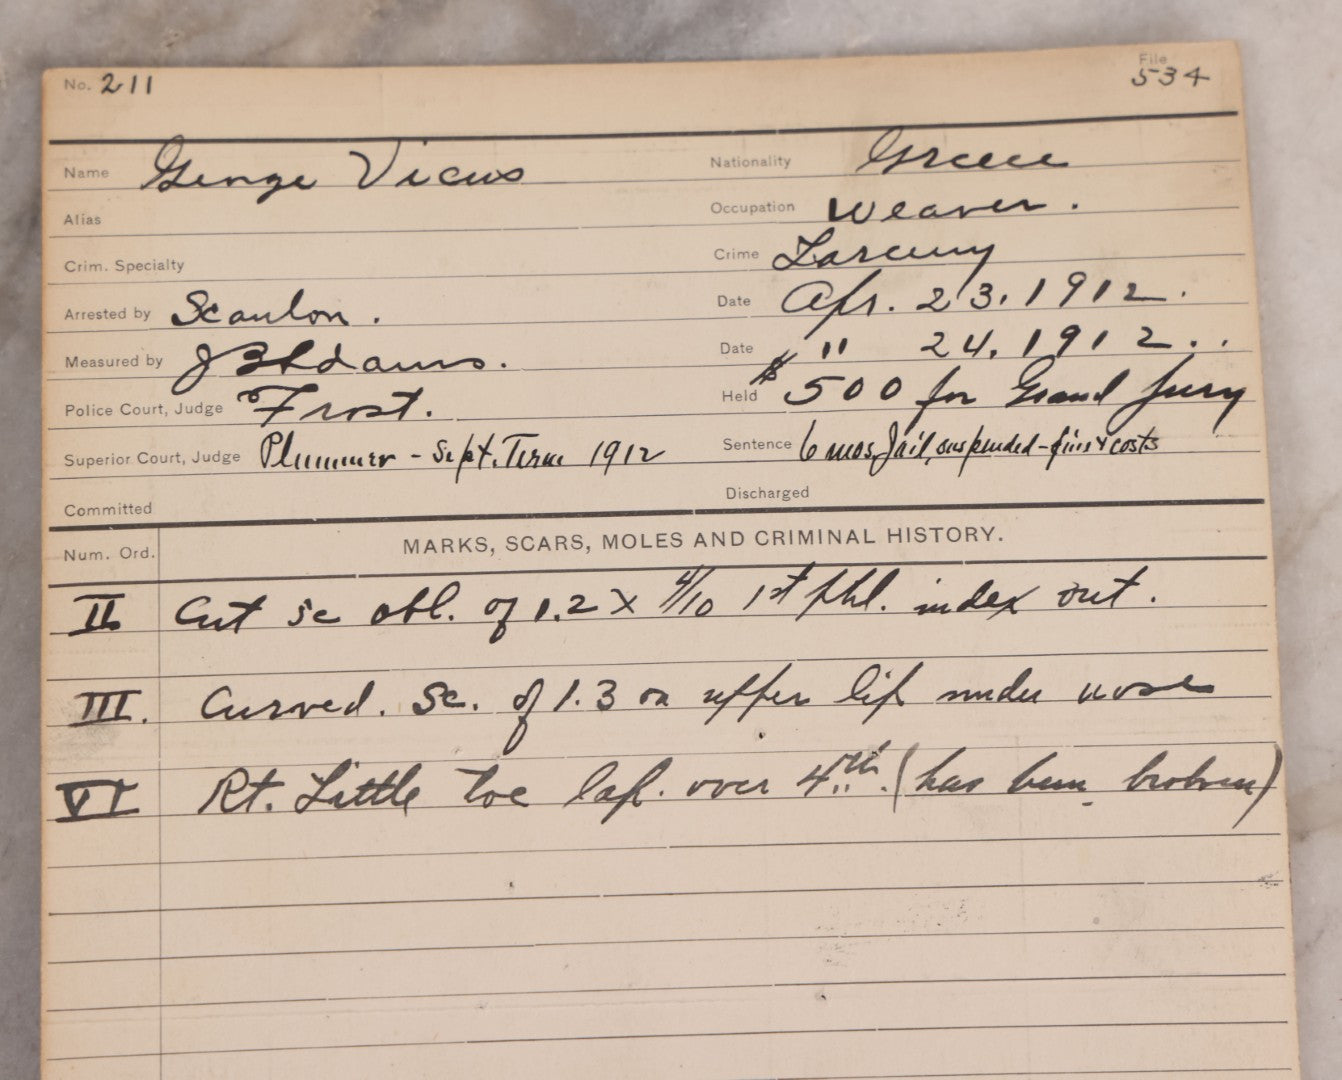 No. 211 File 534
Name George Vicus Nationality Greece
Alias Occupation Weaver.
Crim. Specialty Crime Larceny
Arrested by Scanlon. Date Apr. 23. 1912.
Measured by J B Adams. Date " 24. 1912..
Police Court, Judge Frost. Held $500 for Grand Jury
Superior Court, Judge Plummer - Sept. Term 1912 Sentence 6 mos. Jail, suspended - fine & costs
Committed Discharged
Num. Ord. MARKS, SCARS, MOLES AND CRIMINAL HISTORY.
II Cut sc obl. of 1.2 X 4/10 1st phl. index out.
III. Curved. Sc. of 1.3 on upper lip under nose
VI Rt. Little toe lap. over 4th. (has been broken)